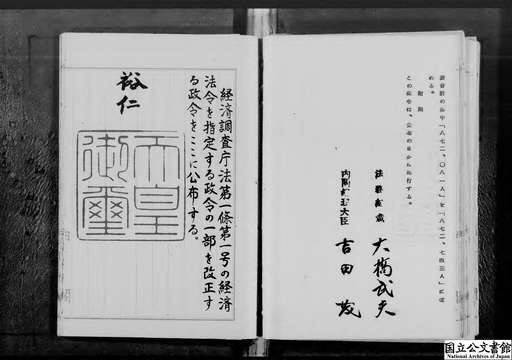 表合計の表中「八七二、〇八一人」を「八七二、七四三人」に改
める。
附則
この政令は、公布の日から施行する。
法務総裁 大橋武夫
内閣総理大臣 吉田茂
経済調査庁法第一條第一号の経済
法令を指定する政令の一部を改正す
る政令をここに公布する。
裕仁
天皇
御璽
国立公文書館
National Archives of Japan